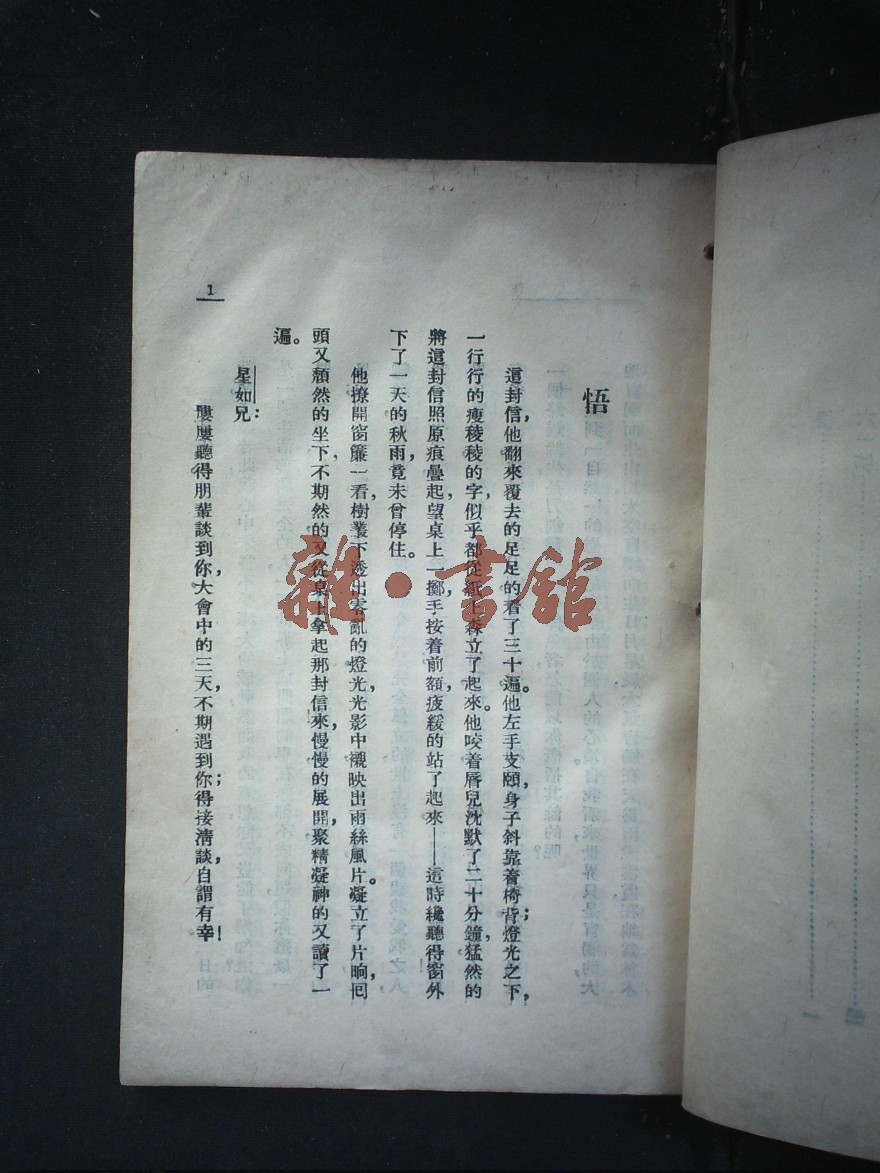 悟
這封信，他翻來覆去的足足的看了三十遍。他左手支頤，身子斜靠着椅背，燈光之下，
一行行的瘦稜稜的字，似乎都從紙上森立了起來。他咬着唇兒沈默了二十分鐘，猛然的
將這封信照原痕疊起，望桌上一擲，手按着前額，疲緩的站了起來——這時纔聽得窗外
下了一天的秋雨，竟未曾停住。
他撩開窗簾一看，樹叢下透出零亂的燈光，光影中襯映出雨絲風片。凝立了片晌，回
頭又頹然的坐下，不期然的又從桌上拿起那封信來，慢慢的展開，聚精凝神的又讀了一
遍。
星如兄：
屢屢聽得朋輩談到你，大會中的三天，不期遇到你；得接清談，自謂有幸！
1
雜·書館